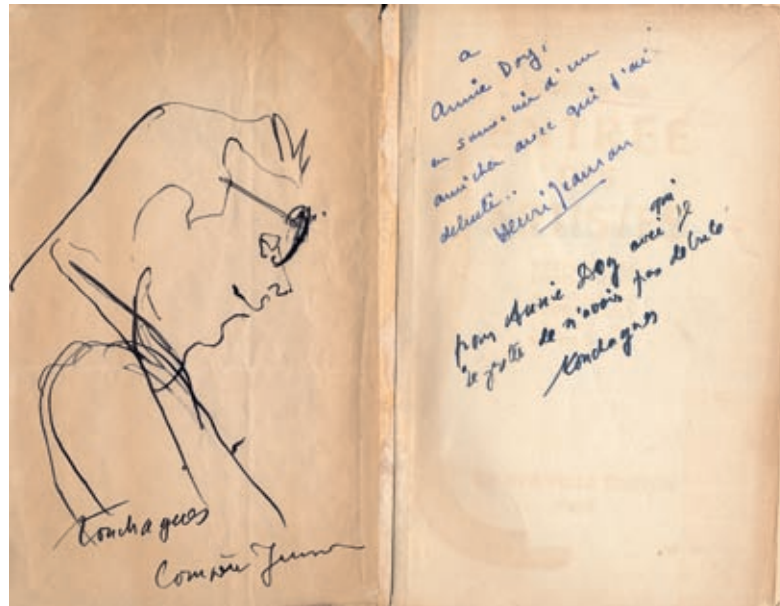 Touchagues
Compère Jeanson
a
Annie Dog,
en souvenir d'un
amicher avec qui j'ai
débuté..
Henri Jeanson
pour Annie Dog avec qui
je de n'avoir pas débuté
Touchagues